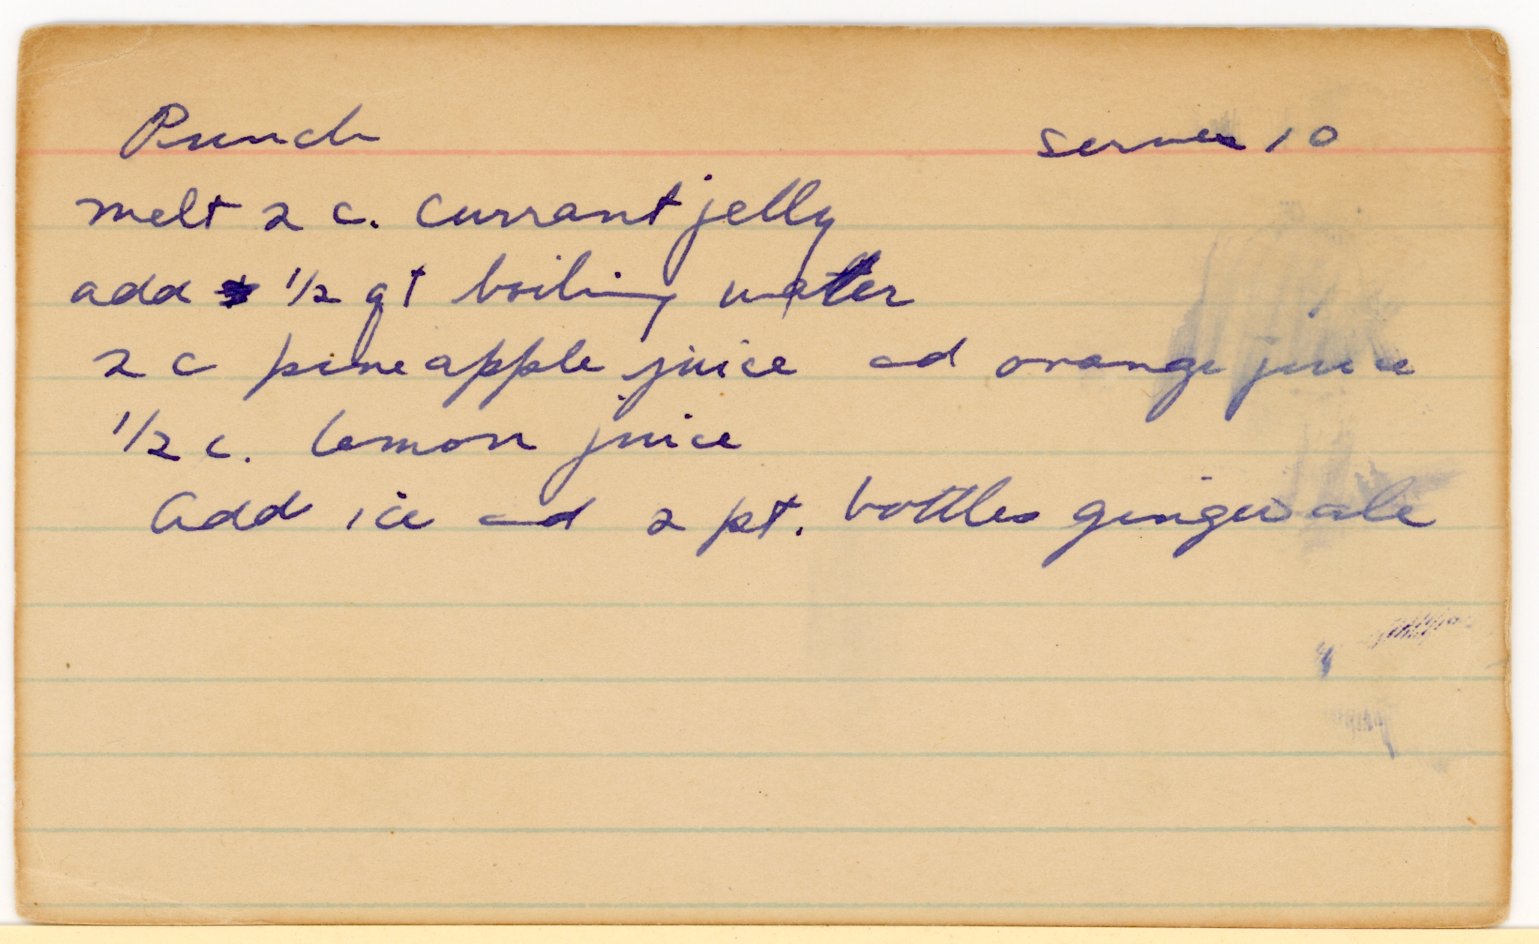 Punch serves 10
melt 2 c. currant jelly
add 1/2 qt boiling water
2 c pineapple juice ad orange juice
1/2 c. lemon juice
Add ice ad 2 pt. bottles ginger ale